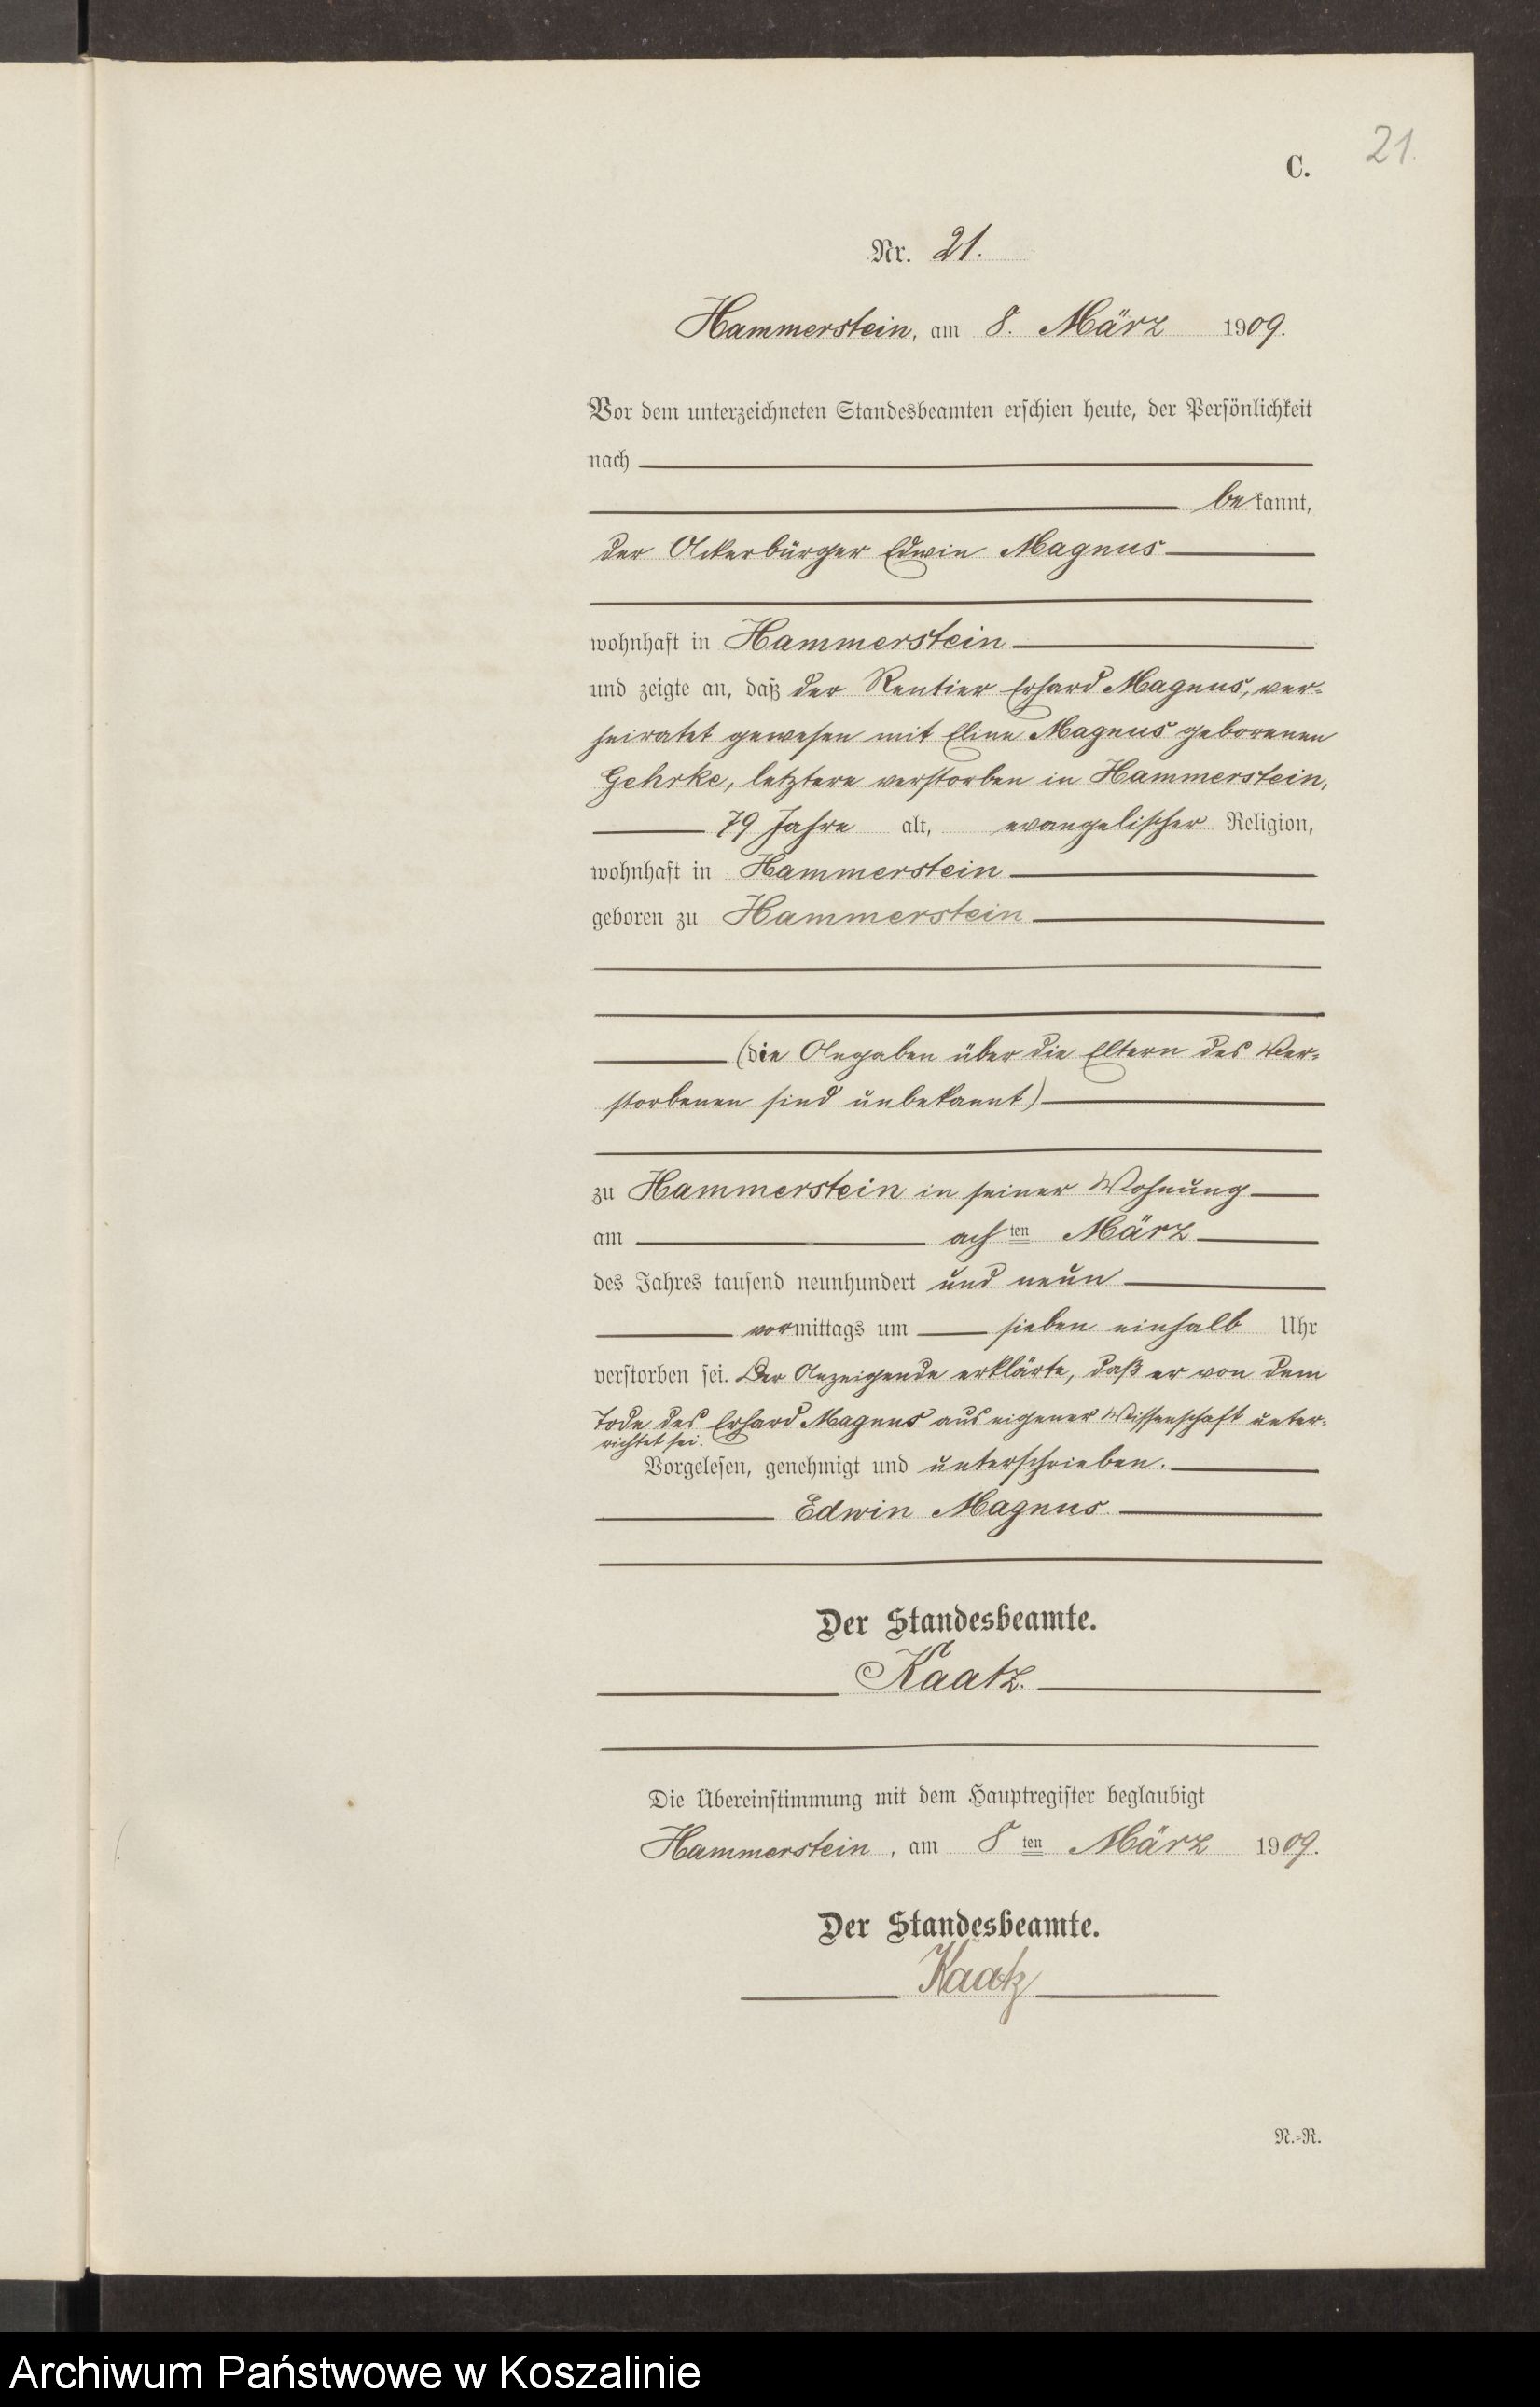 21.
C.
Nr. 21.
Hammerstein, am 8. März 1909.
Vor dem unterzeichneten Standesbeamten erschien heute, der Persönlichkeit
nach
bekannt,
der Ackerbürger Edwin Magnus
wohnhaft in Hammerstein
und zeigte an, daß der Rentier Erhard Magnus, ver-
heiratet gewesen mit Eline Magnus geborenen
Gehrke, letztere verstorben in Hammerstein,
79 Jahre alt, evangelischer Religion,
wohnhaft in Hammerstein
geboren zu Hammerstein
(die Angaben über die Eltern des Ver-
storbenen sind unbekannt)
zu Hammerstein in seiner Wohnung
am achten März
des Jahres tausend neunhundert und neun
vormittags um sieben einhalb Uhr
verstorben sei. Der Anzeigende erklärte, daß er von dem
Tode des Erhard Magnus aus eigener Wissenschaft unter-
richtet sei.
Vorgelesen, genehmigt und unterschrieben.
Edwin Magnus
Der Standesbeamte.
Kaatz.
Die Übereinstimmung mit dem Hauptregister beglaubigt
Hammerstein, am 8ten März 1909.
Der Standesbeamte.
Kaatz
N.-R.
Archiwum Państwowe w Koszalinie